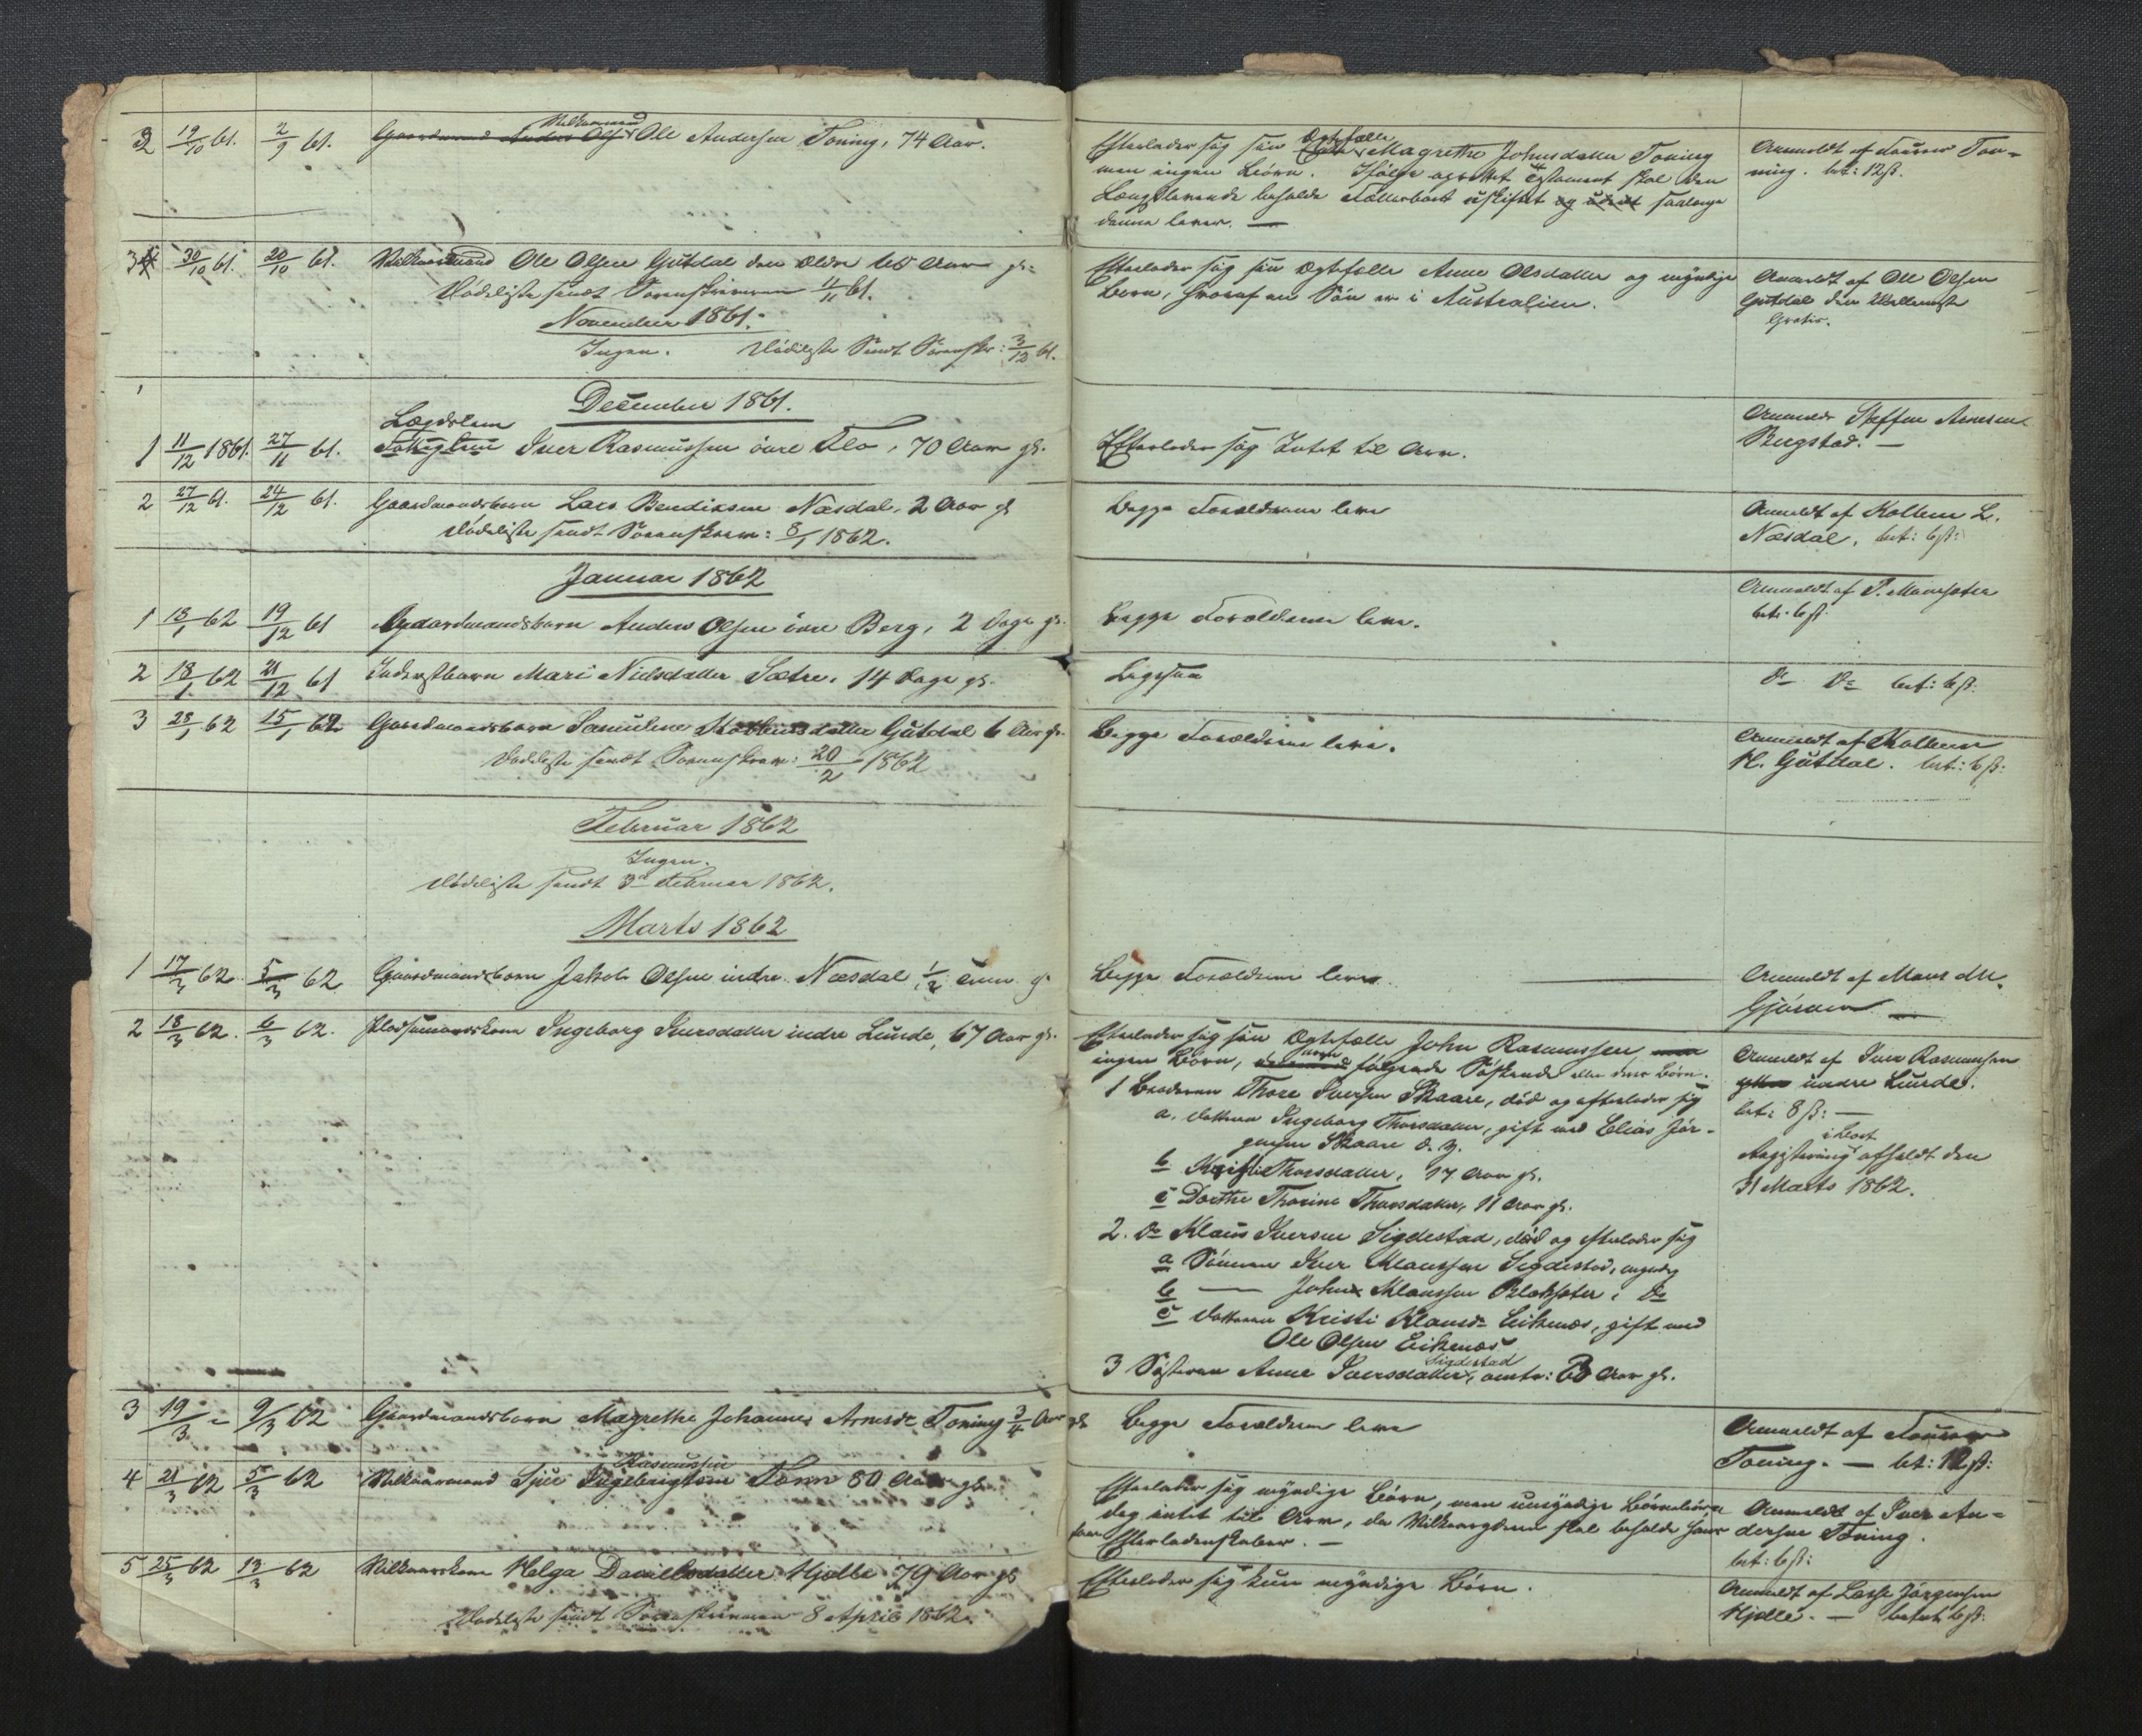 3 19/10 61. 2/9 61. Gaardmand Anders Olss Vilkaarmand Ole Andersen Toning, 74 Aar.
Efterlader sig sin Ægtefælle Magrethe Johnsdatter Toning
men ingen Börn. Ifölge oprettet Testament skal den
Længstlevende beholde Fællesboet uskiftet og saalenge
denne lever. —
Anmeldt af Ton-
ning. bet: 12 ß.
3 30/10 61. 20/10 61. Vilkaarmand Ole Olsen Gütdal den ældre 65 Aar gl:
Dödsliste sendt Sorenskriveren 4/11 61.
Efterlader sig sin Ægtefælle Anne Olsdatter og myndige
Börn, hvoraf en Sön er i Australien.
Anmeldt af Ole Olsen
Gütdal den Mellemste
Gratis.
November 1861.
Ingen. Dödsliste Sendt Sorenskr: 3/12 61.
December 1861.
Lægdslem
1 11/12 1861. 27/11 61. Iver Rasmussen övre Flo, 70 Aar gl.
Efterlader sig Intet til Arv.
Anmeldt Steffen Arnesen
Bergstad. —
2 27/12 61. 24/12 61. Gaardmandsbarn Lars Bendiksen Næsdal, 2 Aar gl
Dödsliste sendt Sorenskriv: 8/1 1862.
Begge Forældrene leve
Anmeldt af Kolbein L.
Næsdal, bet: 6 ß:
Januar 1862
1 13/1 62 19/12 61 Gaardmandsbarn Anders Olsen övre Berg, 2 Dage gl.
Begge Forældrene leve.
Anmeldt af P. Maurseter
bet: 6 ß
2 18/1 62 21/12 61 Inderstbarn Mari Nielsdatter Sætre, 14 Dage gl.
Ligesaa
Do Do bet: 6 ß.
3 28/1 62 15/1 62 Gaardmandsbarn Samuline Kolbeinsdatter Gütdal 6 Aar gl.
Dödsliste sendt Sorenskriv: 20/2 1862
Begge Forældrene leve.
Anmeldt af Kolbein
H. Gütdal. bet: 6 ß:
Februar 1862
Ingen.
Dödsliste sendt 3d Februar 1862.
Marts 1862
1 17/3 62 5/3 62 Gaardmandsbarn Jakob Olsen indre Næsdal, 1/2 gl
Begge Forældrene leve
Anmeldt af Mons
Gjörven —
2 18/3 62. 6/3 62. Pladsemandskone Ingeborg Iversdatter indre Lunde, 67 Aar gl.
Efterlader sig sin Ægtefælle John Rasmussen,
ingen Börn, følgende Söskende eller deres Börn.
1 Broderen Thore Iversen Skaare, död og efterlader sig
a. datteren Ingeborg Thoresdatter, gift med Elias Jör-
gensen Skaare d. y.
b Kristi Thoresdatter, 17 Aar gl.
c Dorthe Thorine Thoresdatter, 11 Aar gl.
2. Do Klaus Iversen Sigdestad, död og efterlader sig
a Sönnen Iver Klaussen Sigdestad, myndig
b — John Klaussen i Do
c datteren Kristi Klausd. Eikenæs, gift med
Ole Olsen Eikenæs
3 Sösteren Anne Iversdatter Sigdestad, omtr: 63 Aar gl.
Anmeldt af Iver Rasmussen
indre Lunde.
bet: 8 ß: —
Registrering i Boet afholdt den
31 Marts 1862.
3 19/3 - 9/3 62 Gaardmandsbarn Magrethe Johanne Arnesdr Toning 3/4 Aar gl
Begge Forældrene leve
Anmeldt af
Toning. — bet: 12 ß:
4 21/3 62 5/3 62 Vilkaarmand Sjur Rasmussen Tonn 80 Aar gl.
Efterlader sig myndige Börn, men umyndige Börnebörn
dog intet til Arv, da Vilkaarsgiveren skal beholde hans
Efterladenskaber. —
Anmeldt af Iver An-
dersen Toning.
bet: 6 ß:
5 25/3 62 13/3 62 Vilkaarskone Helga Danielsdatter Hjelle 79 Aar gl
Dödsliste sendt Sorenskriveren 8 April 1862.
Efterlader sig kun myndige Börn.
Anmeldt af Lasse Jörgensen
Hjelle. — betalt 6 ß: